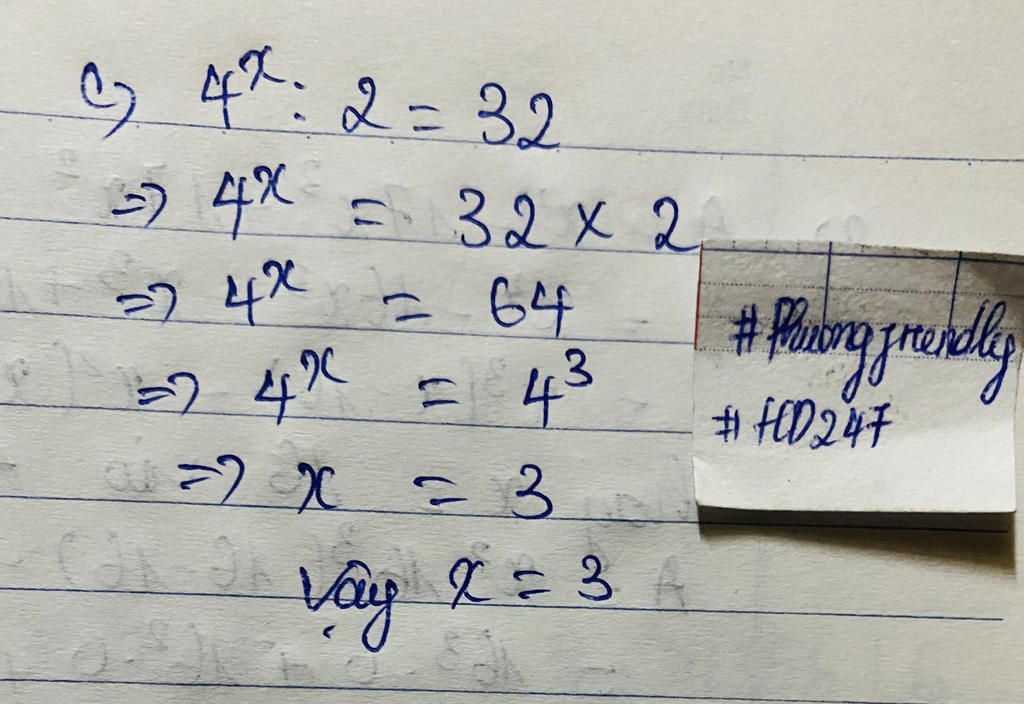 c) 4^x : 2 = 32
=> 4^x = 32 x 2
=> 4^x = 64
=> 4^x = 4^3
=> x = 3
Vậy x = 3
# Phuongfriendly
# HD247